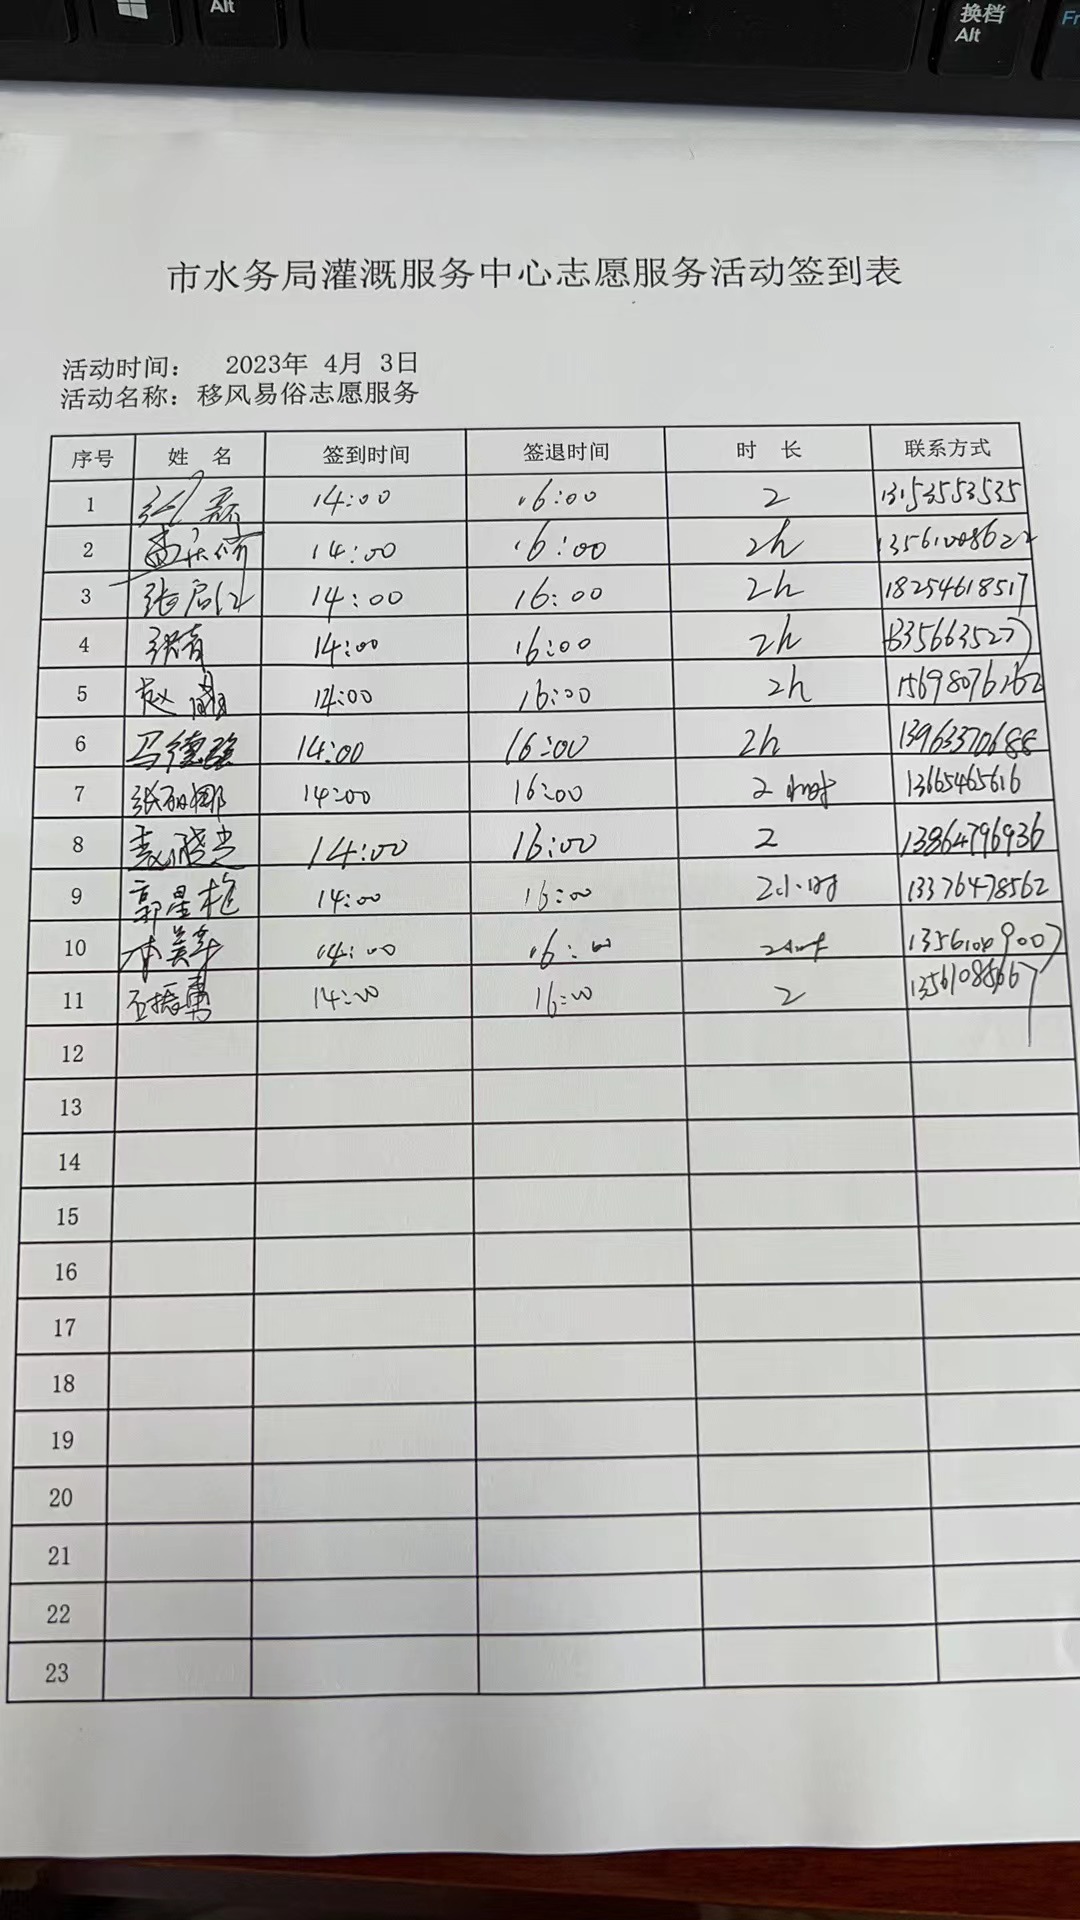 Alt
换档
Alt
市水务局灌溉服务中心志愿服务活动签到表
活动时间： 2023年 4月 3日
活动名称：移风易俗志愿服务
序号 姓 名 签到时间 签退时间 时 长 联系方式
1 14:00 16:00 2 13153553535
2 14:00 16:00 2h 13561008622
3 14:00 16:00 2h 18254618517
4 14:00 16:00 2h
5 赵 14:00 16:00 2h 15698076262
6 马德强 14:00 16:00 2h 13963370688
7 张丽娜 14:00 16:00 2小时 13665465616
8 14:00 16:00 2 13864796936
9 郭星 14:00 16:00 2小时 13376478562
10 14:00 16:00
11 振勇 14:00 16:00 2 13561085667
12
13
14
15
16
17
18
19
20
21
22
23